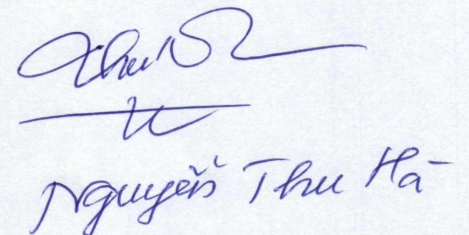 Nguyễn Thu Hà